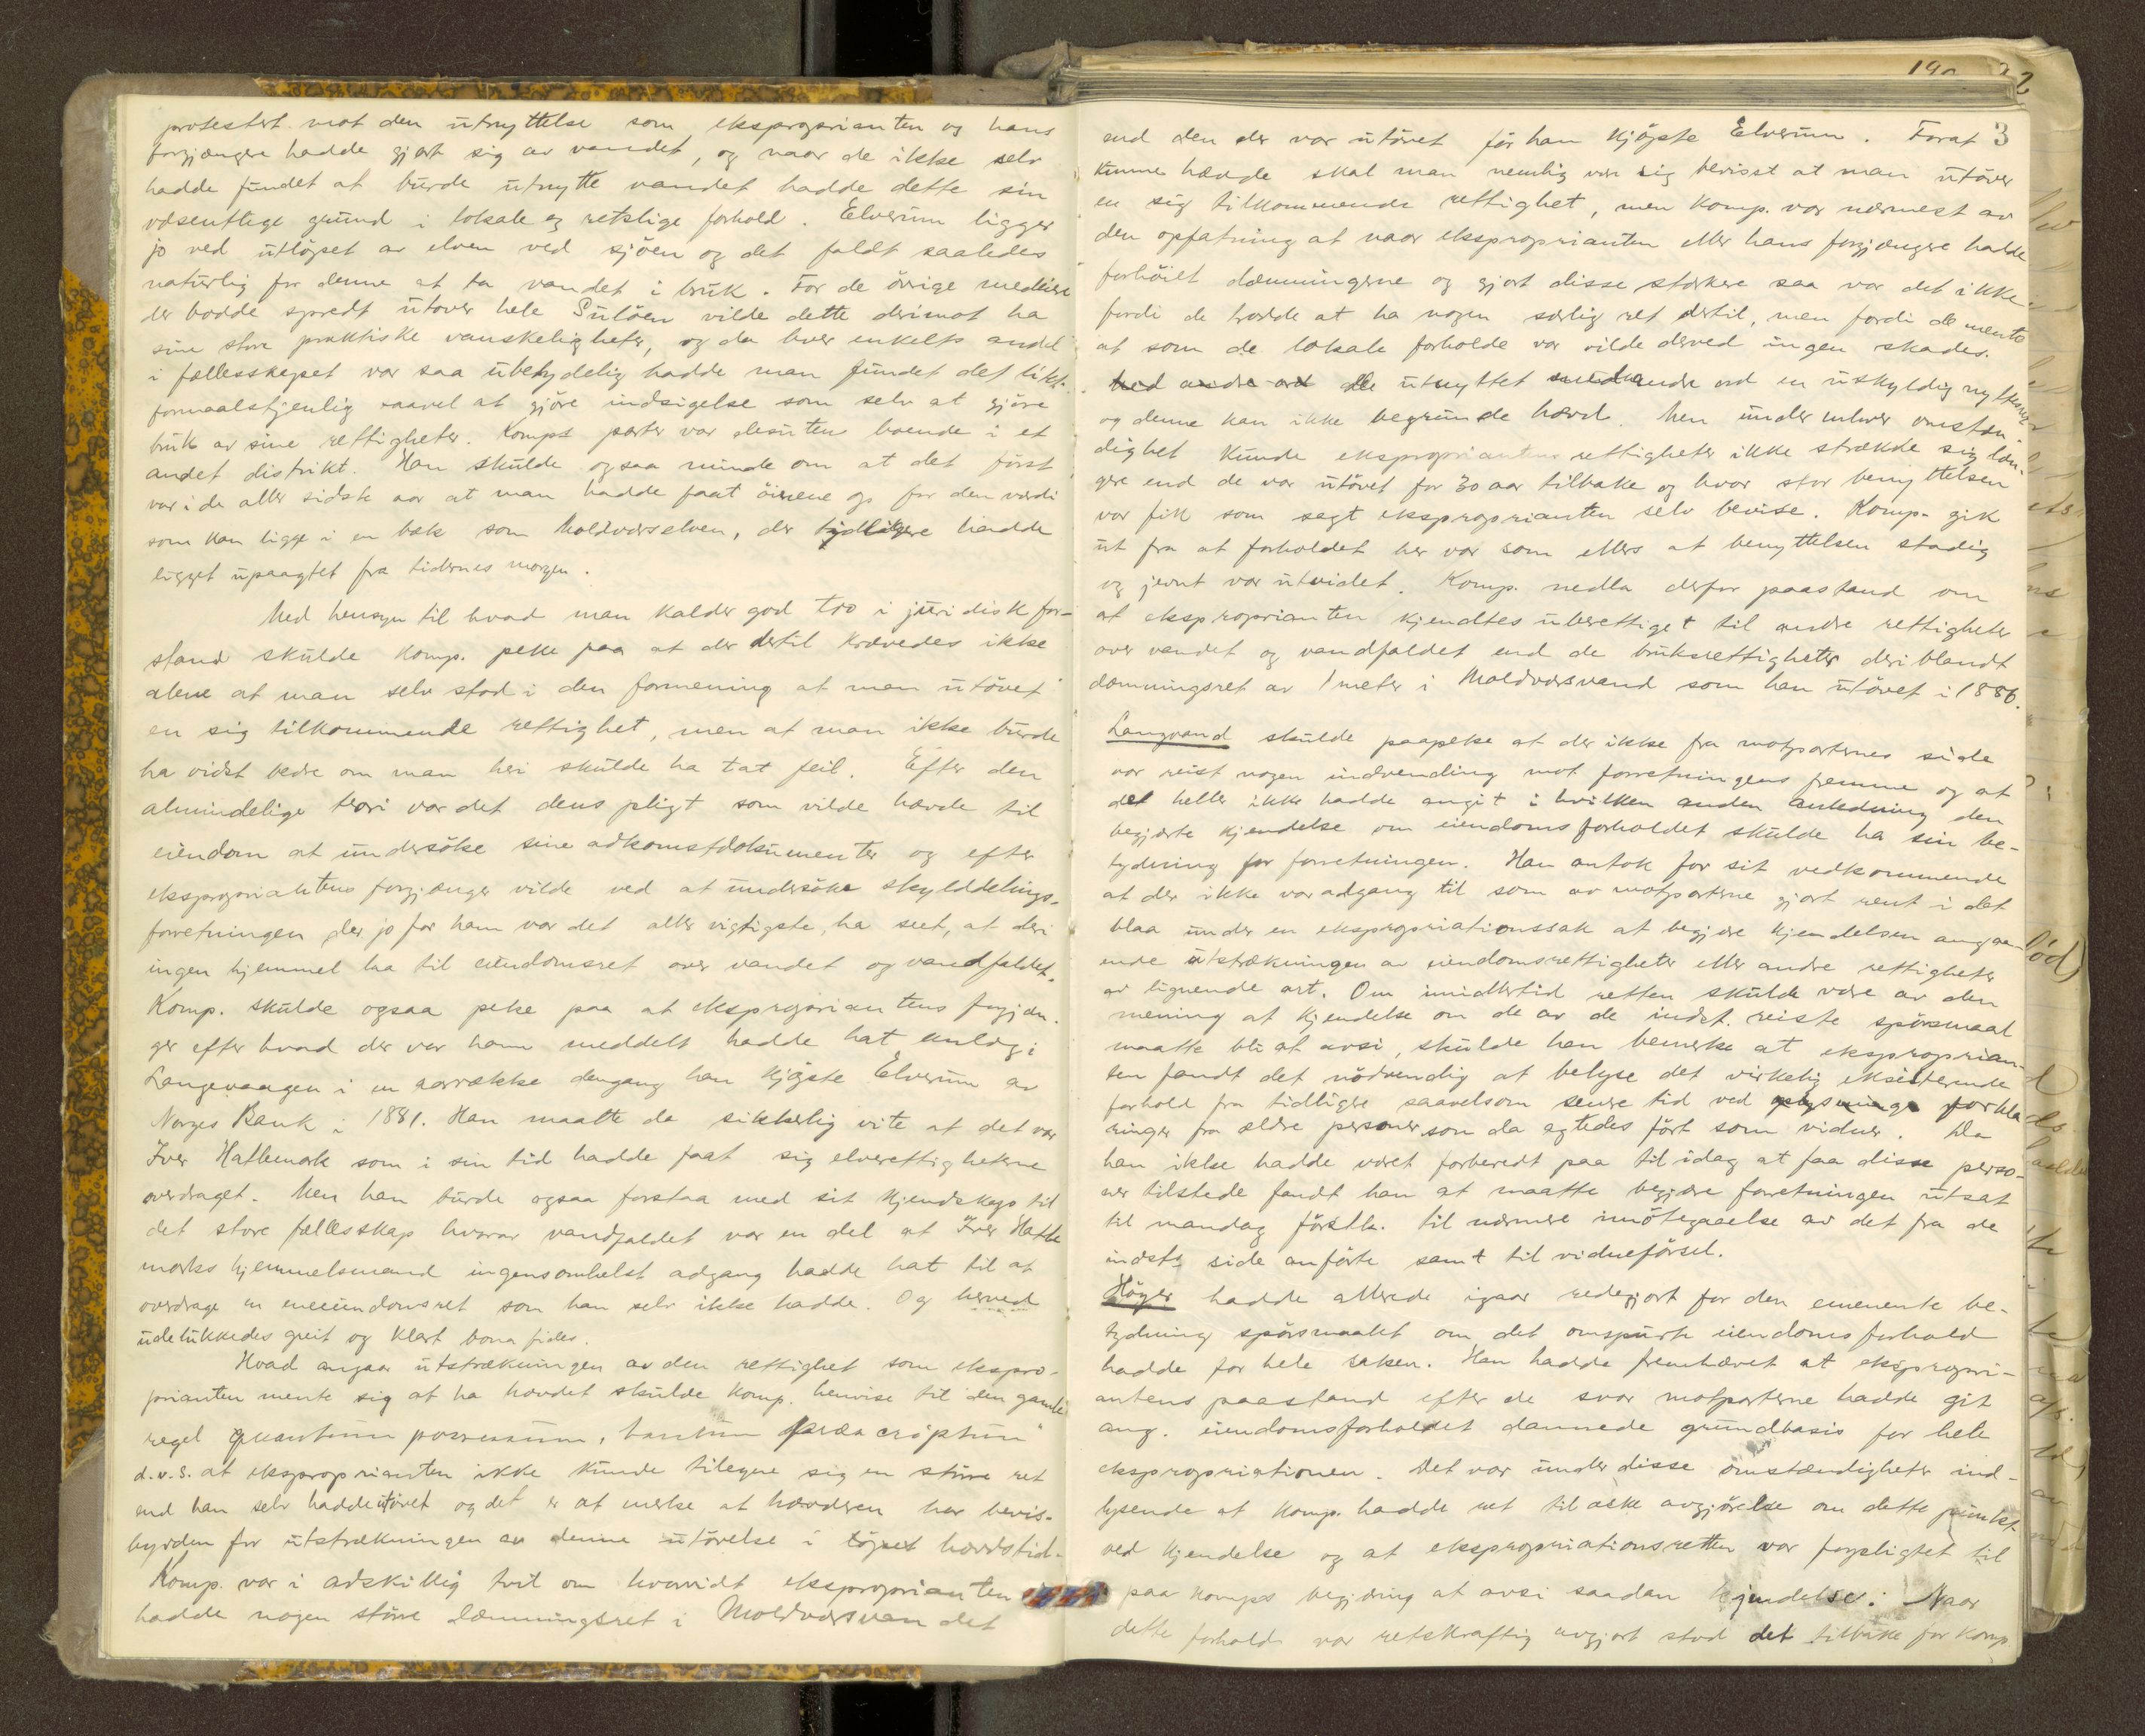 protestert mot den utnyttelse som eksproprianten og hans
forgjængere hadde gjort sig av vandet, og naar de ikke selv
hadde fundet at burde utnytte vandet hadde dette sin
væsentlige grund i lokale og retslige forhold. Elverum ligger
jo ved utløpet av elven ved sjøen og det faldt saaledes
naturlig for denne at ta vandet i bruk. For de øvrige medeiere
der bodde spredt utover hele Suløen vilde dette derimot ha
sine store praktiske vanskeligheter, og da hver enkelts andel
i fællesskapet var saa ubetydelig hadde man fundet det likt
formaalstjenlig saavel at gjøre indsigelse som selv at gjøre
bruk av sine rettigheter. Komps parter var desuten boende i et
andet distrikt. Han skulde ogsaa minde om at det først
var i de aller sidste aar at man hadde faat øinene op for den værdi
som kan ligge i en bæk som Moldværselven, der tydligere hadde
ligget upaagtet fra tidernes morgen.
Med hensyn til hvad man kalder god tro i juridisk for-
stand skulde komp. peke paa at der dertil krævedes ikke
alene at man selv stod i den formening at man utøvet
en sig tilkommende rettighet, men at man ikke burde
ha vidst bedre om man heri skulde ha tat feil. Efter den
almindelige teori var det dens pligt som vilde hævde til
eiendom at undersøke sine adkomstdokumenter og efter
eksproprianteus forgjænger vilde ved at undersøke skylddelings-
forretningen, der jo for ham var det aller vigtigste, ha seet, at deri
ingen hjemmel laa til eiendomsret over vandet og vandfaldet.
Komp. skulde ogsaa peke paa at eksproprianteus forgjæn-
ger efter hvad der var ham meddelt hadde hat anlæg i
Langevaagen i en aarrække dengang han kjøpte Elverum av
Norges Bank i 1881. Han maatte da sikkerlig vite at det var
Iver Hatlemark som i sin tid hadde faat sig elverettigheterne
overdraget. Men han burde ogsaa forstaa med sit kjendskap til
det store fællesskap hvorav vandfaldet var en del at Iver Hatle
marks hjemmelsmand ingensomhelst adgang hadde hat til at
overdrage en eneeiendomsret som han selv ikke hadde. Og herved
udelukkedes greit og klart bona fides.
Hvad angaar utstrækningen av den rettighet som ekspro-
prianten mente sig at ha hævdet skulde komp. henvise til den gamle
regel quantum possessum, tantum præscriptum"
d.v.s. at eksproprianten ikke kunde tilegne sig en større ret
end han selv hadde utøvet og det er at merke at hævderen har bevis-
byrden for utstrækningen av denne utøvelse i løpet hævdstid.
Komp. var i adskillig tvil om hvorvidt eksproprianten
hadde nogen større dæmningsret i Moldværsvandet
3
end den der var utøvet før han kjøpte Elverum. Forat
kunne hævde skal man nemlig være sig bevisst at man utøver
en sig tilkommende rettighet, men komp. var nærmest av
den opfatning at naar eksproprianten eller hans forgjængere hadde
forhøiet dæmningerne og gjort disse sterkere saa var det ikke
fordi de trodde at ha nogen særlig ret dertil, men fordi de mente
at som de lokale forholde var vilde derved ingen skades.
Med andre ord de utnyttet med andre ord en uskyldig nytte
og denne kan ikke begrunde hævd. Men under enhver omstæn-
dighet kunde eksproprianteus rettigheter ikke strække sig læn-
gere end de var utøvet for 30 aar tilbake og hvor stor benyttelsen
var fik som sagt eksproprianten selv bevise. Komp. gik
ut fra at forholdet her var som ellers at benyttelsen stadig
og jevnt var utvidet. Komp. nedla derfor paastand om
at eksproprianten kjendtes uberettiget til andre rettigheter
over vandet og vandfaldet end de bruksrettigheter deriblandt
dæmningsret av 1 meter i Moldværsvand som han utøvet i 1886.
Langvand skulde paapeke at der ikke fra motparternes side
var reist nogen indvending mot forretningens fremme og at
det heller ikke hadde angit i hvilken anden anledning den
begjærte kjendelse om eiendomsforholdet skulde ha sin be-
tydning for forretningen. Han antok for sit vedkommende
at der ikke var adgang til som av motparterne gjort rent i det
blaa under en ekspropriationssak at begjære kjendelsen angaa-
ende utstrækningen av eiendomsrettigheter eller andre rettigheter
av lignende art. Om imidlertid retten skulde være av den
mening at kjendelse om de av de indst. reiste spørsmaal
maatte bli at avsi, skulde han bemerke at eksproprian-
ten fandt det nødvendig at belyse det virkelig eksisterende
forhold fra tidligere saavelsom senere tid ved forkla
ringer fra ældre personer som da agtedes ført som vidner. Da
han ikke hadde været forberedt paa til idag at faa disse perso-
ner tilstede fandt han at maatte begjære forretningen utsat
til mandag førstk. til nærmere imøtegaaelse av det fra de
indsts side anførte samt til vidneførsel.
Høyer hadde allerede igaar redegjort for den eminente be-
tydning spørsmaalet om det omspurte eiendomsforhold
hadde for hele saken. Han hadde fremhævet at ekspropri-
antens paastand efter de svar motparterne hadde git
ang. eiendomsforholdet dannede grundbasis for hele
ekspropriationen. Det var under disse omstændigheter ind-
lysende at komp. hadde ret til at æske avgjørelse om dette punkt
ved kjendelse og at ekspropriationsretten var forpligtet til
paa komps begjæring at avsi saadan kjendelse. Naar
dette forhold var retskraftig avgjort stod det tilbake for komp.